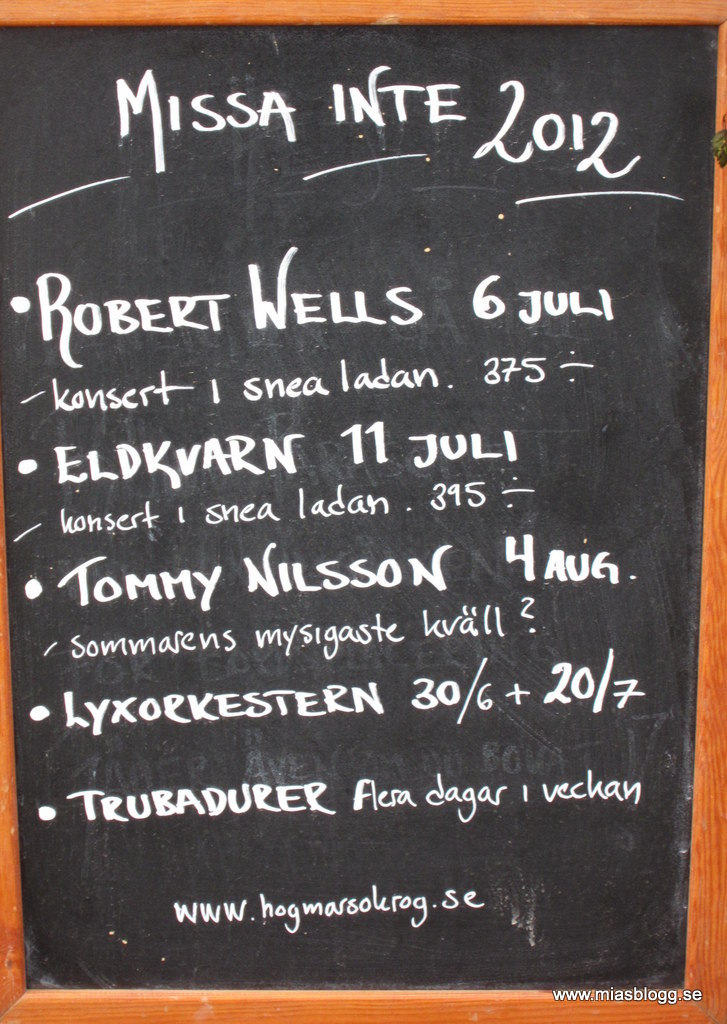 MISSA INTE 2012
• ROBERT WELLS 6 JULI
- konsert i snea ladan. 375 ÷
• ELDKVARN 11 JULI
- konsert i snea ladan. 395 ÷
• TOMMY NILSSON 4 AUG.
- sommarens mysigaste kväll?
• LYXORKESTERN 30/6 + 20/7
• TRUBADURER flera dagar i veckan
www.hogmarsokrog.se
www.miasblogg.se